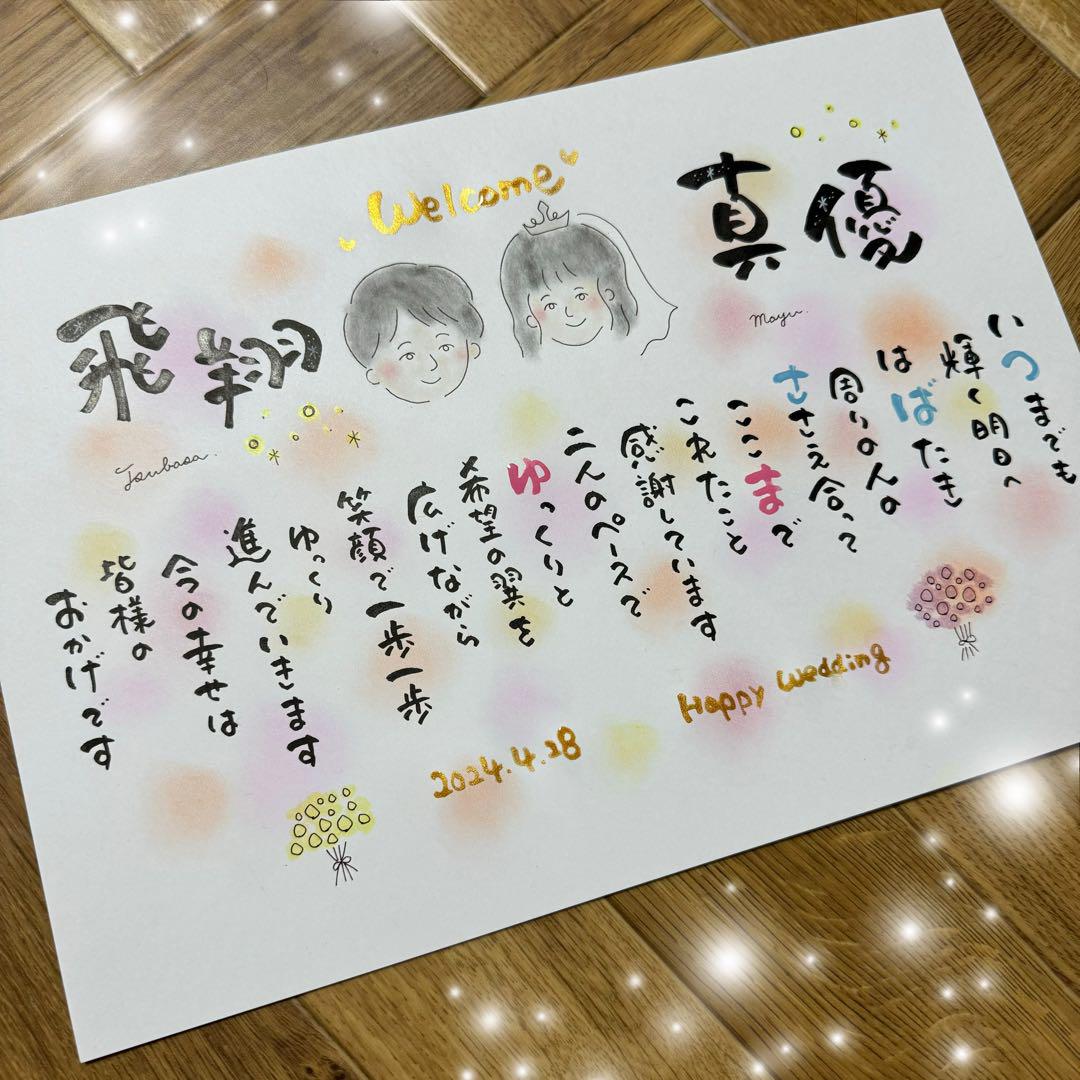 Welcome
真優
Mayu.
飛翔
Tsubasa.
いつまでも
輝く明日へ
はばたき
周りの人の
ささえ合って
ここまで
これたこと
感謝しています
二人のペースで
ゆっくりと
希望の翼を
広げながら
笑顔で一歩一歩
ゆっくり
進んでいきます
今の幸せは
皆様の
おかげです
Happy Wedding
2024.4.28